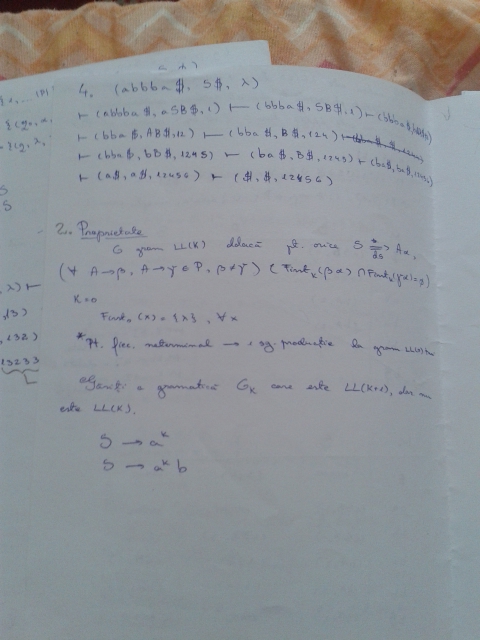 4. (abbba $, S$, λ)
⊢ (abbba $, aSB$, 1) ⊢ (bbba $, SB$, 1) ⊢ (bbba $,
⊢ (bba $, AB$, 12) ⊢ (bba $, B$, 124)
⊢ (bba$, bB$, 1245) ⊢ (ba$, B$, 1245) ⊢ (ba$, ba$,
⊢ (a$, a$, 12456) ⊢ ($, $, 12456)
2.. Proprietate
G gram LL(K) dacă pt. orice S *⇒ds Aα,
(∀ A→β, A→γ ∈ P, β≠γ) ( First_K(βα) ∩ First_K(γα) =
K=0
First_0 (x) = {λ}, ∀x
*Pt. fiec. neterminal → 1 sg. producție la gram LL(
Găsiți o gramatică G_K care este LL(K+1), dar
este LL(K).
S → a^K
S → a^K b
λ) ⊢
,13)
,132)
13233
S
S